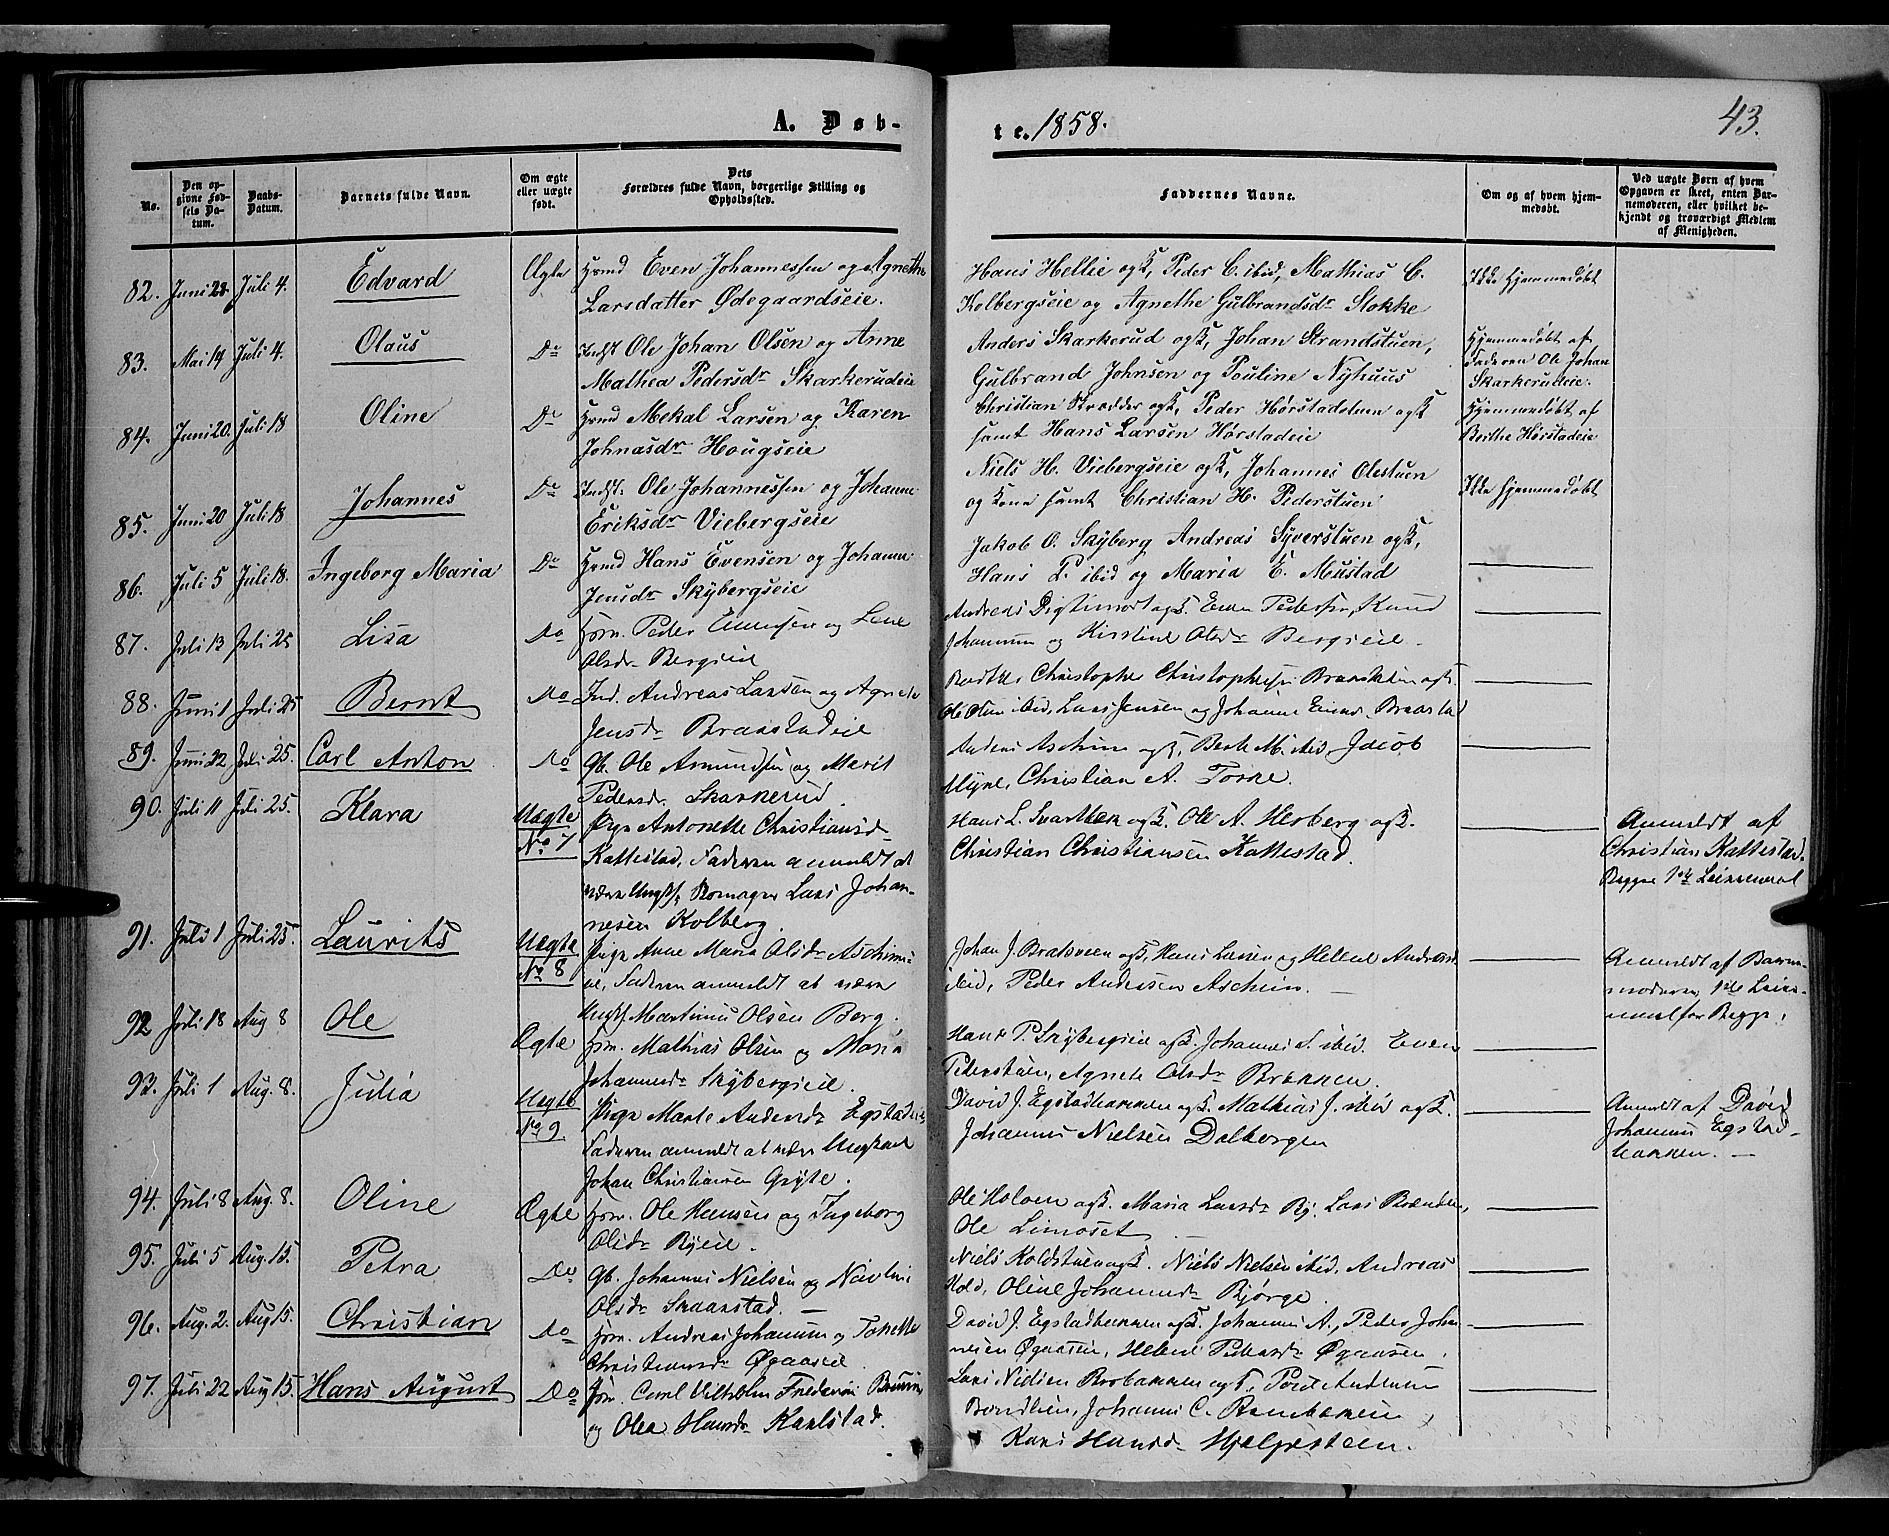 A. Døb-
te. 1858.
43.
No.
Den op-
givne Fød-
sels Da-
tum.
Daabs-
Datum.
Barnets fulde Navn.
Om ægte
eller uægte
født.
Dets
Forældres fulde Navn, borgerlige Stilling og
Opholdssted.
Faddernes Navne.
Om og af hvem hjem-
medøbt.
Ved uægte Børn af hvem
Opgaven er skeet, enten Bar-
nemoderen, eller hvilket be-
kjendt og troværdigt Medlem
af Menigheden.
82. Juni 23 Juli 4. Edvard Ægte Hsmd Even Johannessen og Agnethe
Larsdatter Ødegaardseie.
Hans Hellie og K, Peder C. ibid, Mathias C.
Kolbergseie og Agnethe Gulbrandsdr Stokke
Ikke hjemmedøbt
83. Mai 14 Juli 4. Olaus Do Indst Ole Johan Olsen og Anne
Mathea Pedersdr Skarkerudeie
Anders Skarkerud og K, Johan Strandstuen,
Gulbrand Johnsen og Pouline Nyhuus
Hjemmedøbt af
Faderen Ole Johan
Skarkerudeie.
84. Juni 20. Juli 18 Oline Do Hsmd Mekal Larsen og Karen
Johnasdr Hougseie
Christian Skrædder og K, Peder Hørstadstuen og K
samt Hans Larsen Hørstadeie
Hjemmedøbt af
Berthe Hørstadeie
85. Juni 20 Juli 18 Johannes Do Indst. Ole Johannessen og Johanne
Eriksdr Viebergseie
Niels H. Viebergseie og K, Johannes Olestuen
og Kone samt Christian H. Pederstuen
Ikke hjemmedøbt
86. Juli 5 Juli 18. Ingeborg Maria Do Hsmd Hans Evensen og Johanne
Jensdr Skybergseie
Jakob O. Skyberg Andreas Syverstuen og K,
Hans P. ibid og Maria E. Mustad
87. Juli 13 Juli 25 Lisa Do Hsm. Peder Evensen og Lene
Olsdr Bergseie
Andreas og K. Even Pedersen, Knud
Johannesen og Kirstine Olsdr Bergseie.
88. Juni 1 Juli 25 Bernt Do Ind. Andreas Larsen og Agnete
Jensdr Braastadeie
Christophe Christophersen og K.
Ole Olsen ibid, Lars Jensen og Johanne Braasta
89. Juni 22 Juli 25. Carl Anton Do Gb. Ole Amundsen og Marit
Pedersdr Skarkerud.
Anders Aschim og K, Berte M. ibid, Jacob
Myre, Christian A. Torke.
90. Juli 11 Juli 25. Klara Uægte
No 7
Pige Antonette Christiansdr
Kattestad, Faderen anmeldt at
være Ungk. Lars Johan-
nesen Kolberg.
Hans L. Svartbæk og K. Ole A. Hesberg og K.
Christian Christiansen Kattestad.
Anmeldt af
Christian Kattestad.
Begge 1ste Leiermaal
91. Juli 1 Juli 25. Laurits Uægte
No 8
Pige Anne Maria Olsdr Aschim-
eie, Faderen anmeldt at være
Ungk Martinus Olsen Berg.
Johan J. Brateneen og K, Hans Larsen og Helene Andersdr
ibid, Peder Andersen Aschim.
Anmeldt af Barne-
moderen, 1ste Leier-
maal for Begge.
92 Juli 18 Aug 8 Ole Ægte Hsm. Mathias Olsen og Maria
Johannesdr Skybergseie.
Hans P. Skybergseie og K. Johannes S. ibid. Even
Pederstuen, Agnete Olsdr Brækken.
93. Juli 1 Aug. 8. Julia Uægte
No 9
Pige Marte Andersdr Egstadeie,
Faderen anmeldt at være Ungkarl
Johan Christiansen Gryte.
David J. Egstadbakken og K. Mathias J. ibid og K.
Johannes Nielsen Dalborgen
Anmeldt af David
Johannes Egstad-
bakken.
94. Juli 8 Aug. 8. Oline Ægte Hsm. Ole Hansen og Ingeborg
Olsdr Ryeie.
Ole Holven og K. Maria Larsdr Ry. Lars Brænden,
Ole Limoset
95. Juli 5 Aug. 15. Petra Do Gb. Johannes Nielsen og
Olsdr Skaarstad.
Niels Koldstuen og K. Niels Nielsen ibid. Andreas
Kold, Oline Johannesdr Bjørge.
96. Aug. 2. Aug 15. Christian Do Hsm. Andreas Johannesen og Tonette
Christiansdr Øgaaseie
David J. Egstadbakken og K. Johannes A., Peder Johan-
nesen Øgaasen, Helene Pedersdr Øgaasen.
97. Juli 22 Aug 15. Hans August Do Hsm. Carl Vilhelm Frederik
og Olea Hansdr Karlstad.
Lars Nielsen og K, Poul Andersen
Bondlien, Johannes C.
Kari Hansdr Hjelpesteen.